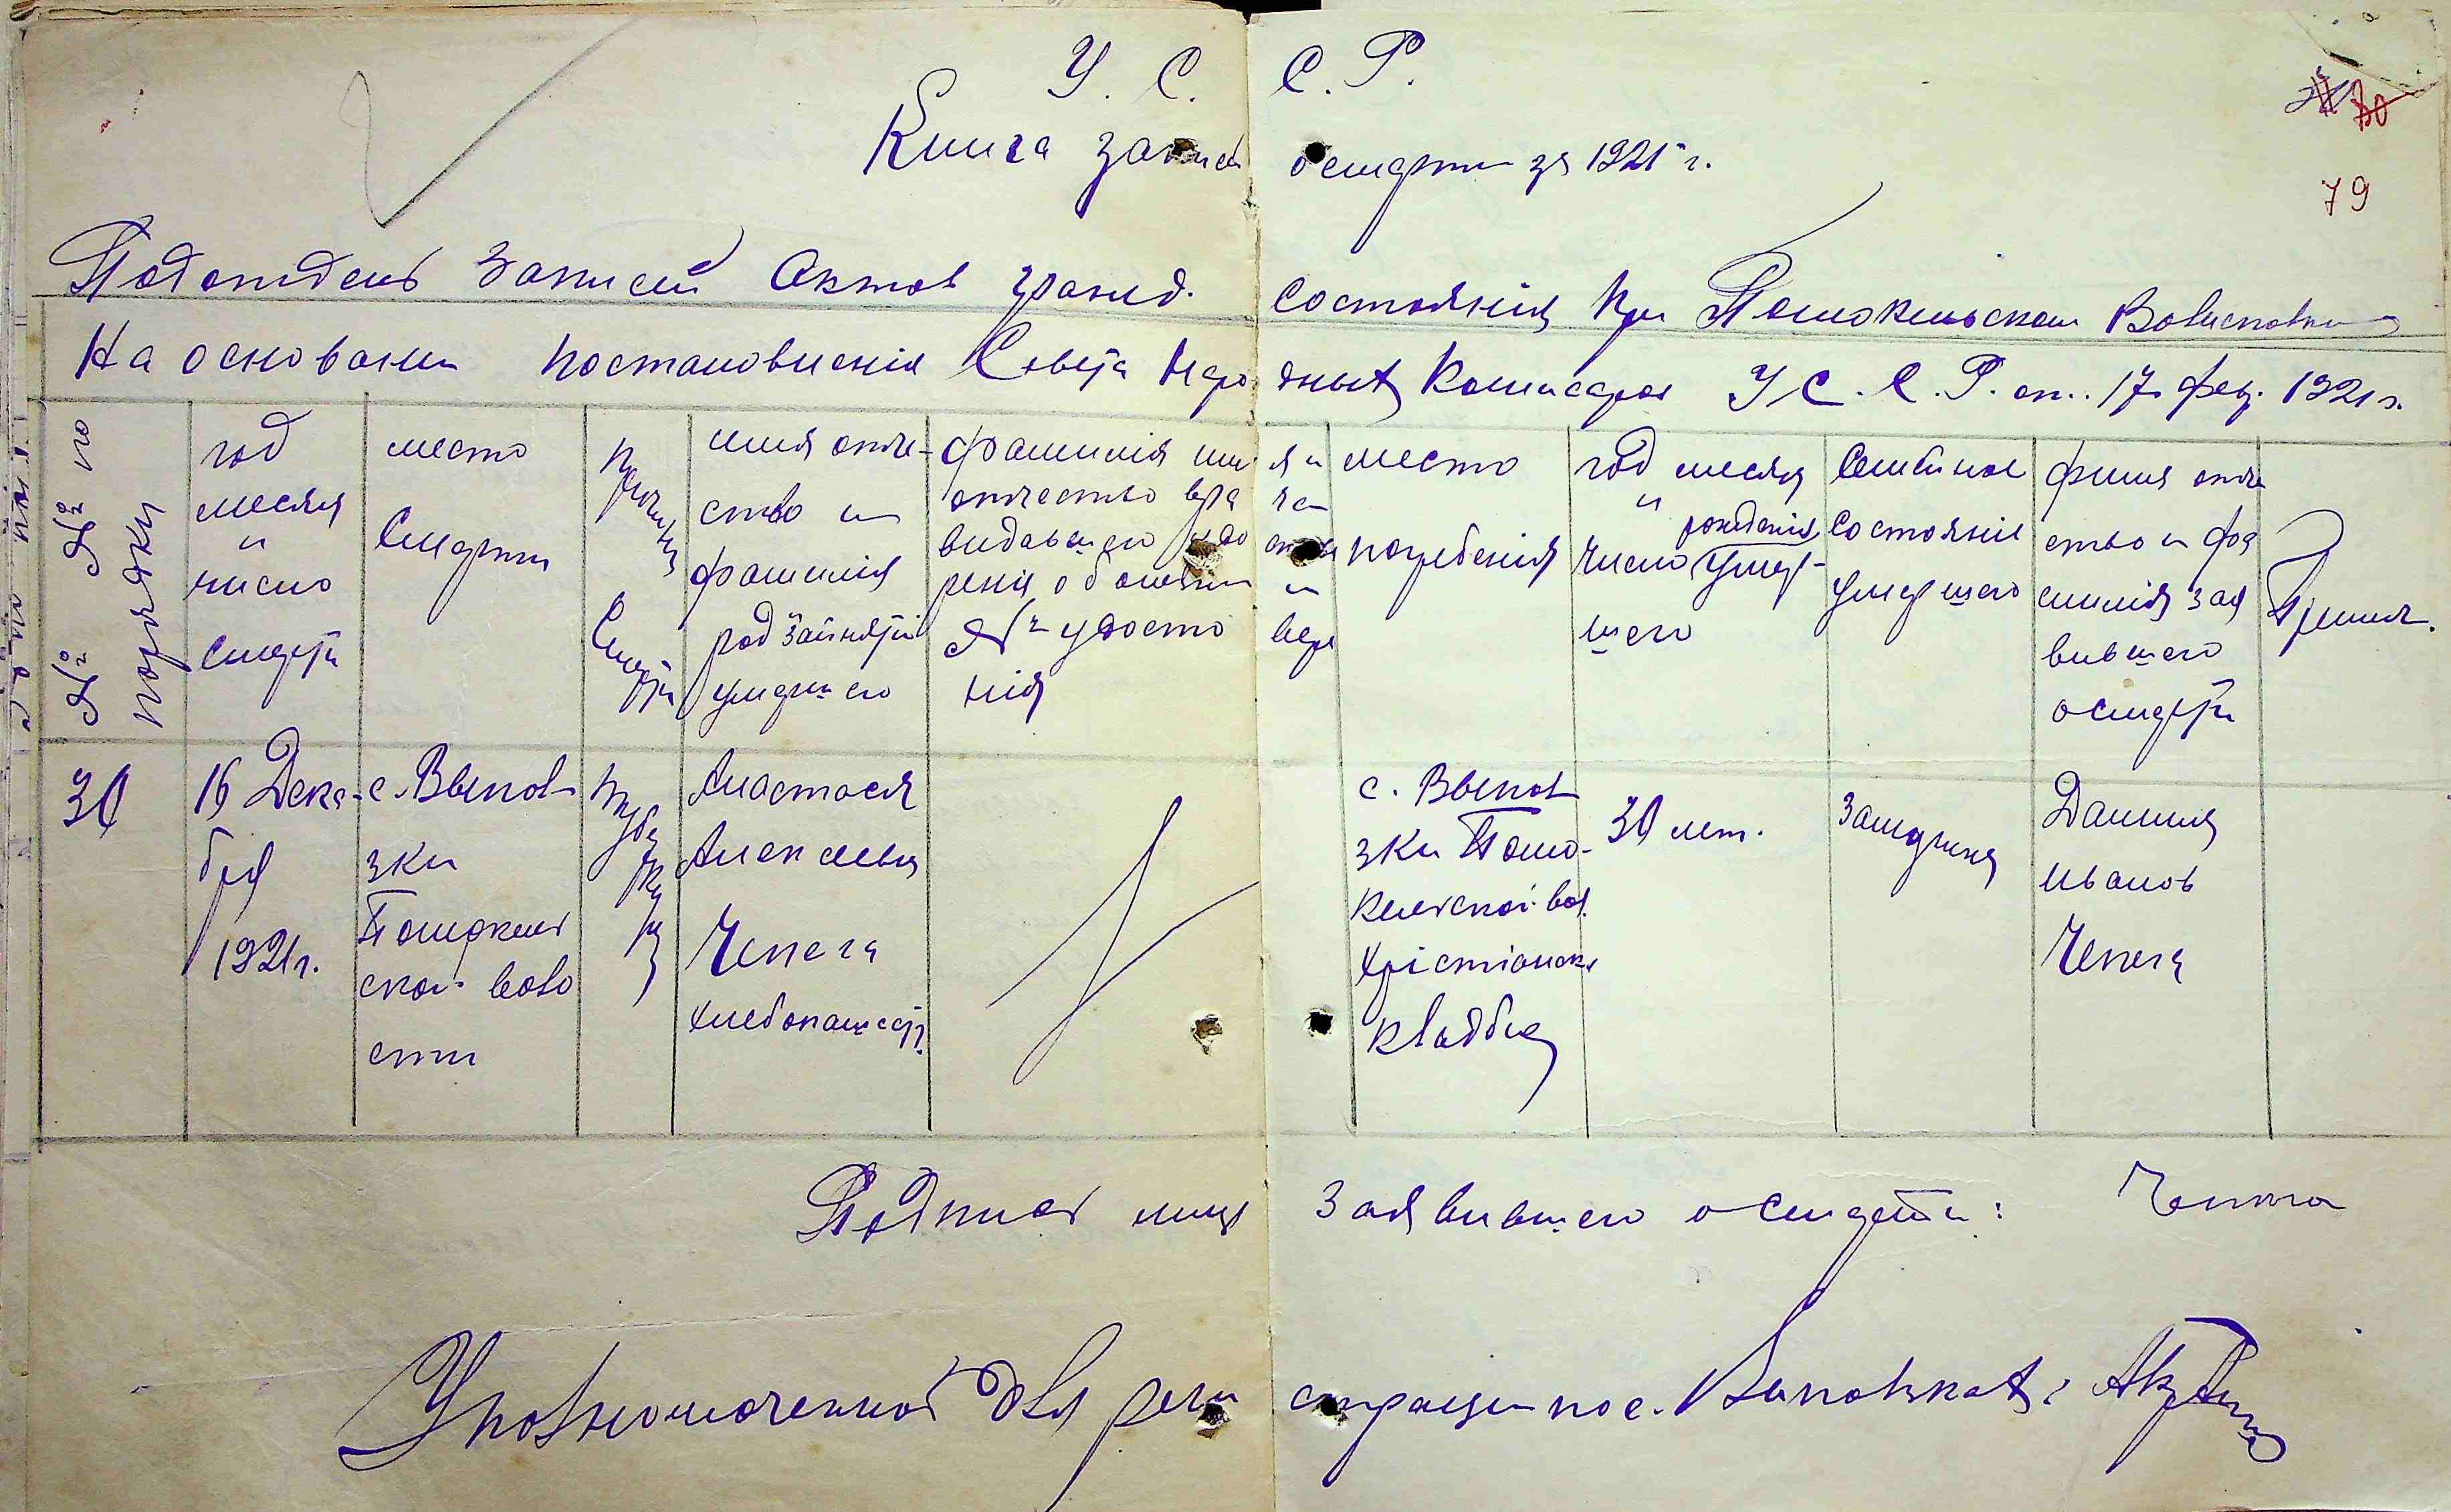 У. С. С. Р.
Книга записи о смерти за 1921 г.
79
Подотдель Записей Актов гражд. состоянія при Волисполкоме
На основании постановленія Совета Народных Комисаров У С. С. Р. от. 17 фев. 1921 г.
№ № по порядку
год
месяц
и
число
смерти
место
Смерти
причина
Смерти
имя отче-
ство и
фамилія
род занятій
умершего
фамилія имя и
отчество врача
видавшего удо
ренія о болезни и
№ удосто вере
нія
место
погребенія
год месяц
и рожденія
число умер-
шего
Семейное
состояніе
умершего
фимия отче
ство и фа
милія зая
вившего
о смерти
Примеч.
30
16 Дека-
бря
1921 г.
с. Выпов
зки
ской воло
сти
Анастасія
Алексеева
Чепега
хлебопашест.
с. Выпов
зки
вол.
Христіанск.
кладбищ
30 лет.
Замужняя
Данииль
Иванов
Чепега
Подпись лица Заявившего о Смерти: Чепига
Уполномоченной для регистрации по с.